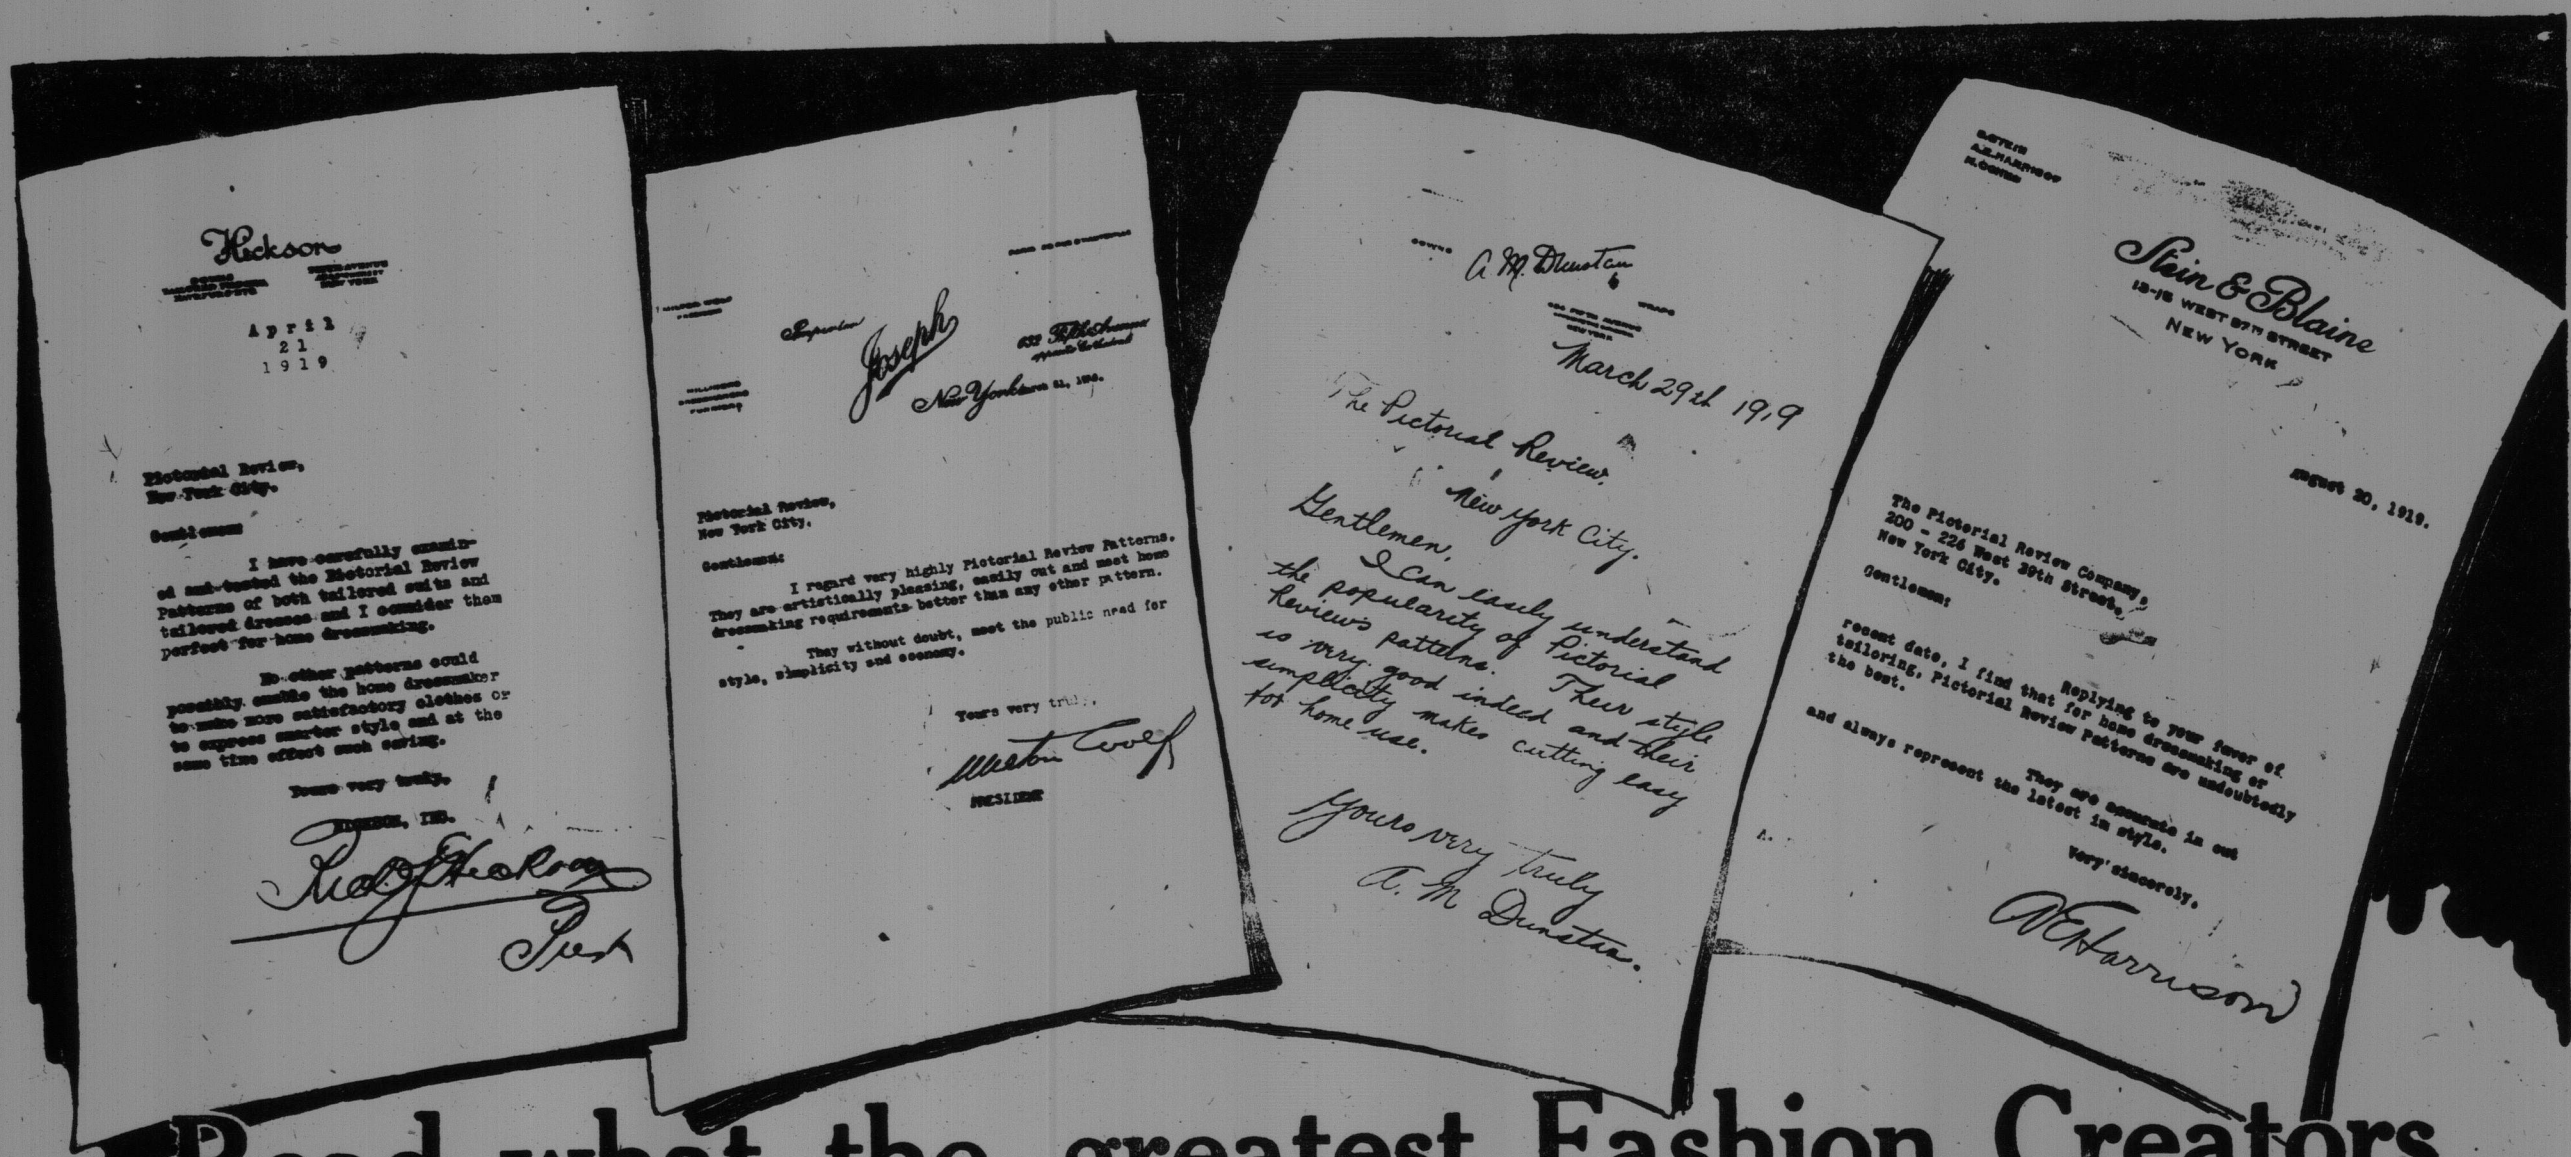 Hickson
April
21
1919
Pictorial Review,
New York City.
Gentlemen:
I have carefully examin-
ed and tested the Pictorial Review
Patterns of both tailored suits and
tailored dresses and I consider them
perfect for home dressmaking.
No other patterns could
possibly enable the home dressmaker
to make more satisfactory clothes or
to express smarter style and at the
same time effect such saving.
Yours very truly,
HICKSON, INC.
Hickson
Pres
Joseph
632 Fifth Avenue
opposite Cathedral
New York
Pictorial Review,
New York City.
Gentlemen:
I regard very highly Pictorial Review Patterns.
They are artistically pleasing, easily cut and meet home
dressmaking requirements better than any other pattern.
They without doubt, meet the public need for
style, simplicity and economy.
Yours very truly,
PRESIDENT
GOWNS
A. M. Dunstan
WRAPS
NEW YORK
March 29th 1919
The Pictorial Review,
New York City.
Gentlemen,
I can easily understand
the popularity of Pictorial
Reviews patterns. Their style
is very good indeed and their
simplicity makes cutting easy
for home use.
Yours very truly
A. M Dunstan.
E. STEIN
A.E. HARRISON
Stein & Blaine
13-15 WEST 57TH STREET
NEW YORK
August 20, 1919.
The Pictorial Review Company,
200 - 226 West 39th Street,
New York City.
Gentlemen:
Replying to your favor of
recent date, I find that for home dressmaking or
tailoring, Pictorial Review Patterns are undoubtedly
the best.
They are accurate in cut
and always represent the latest in style.
Very sincerely,
AE Harrison
Read what the greatest Fashion Creators